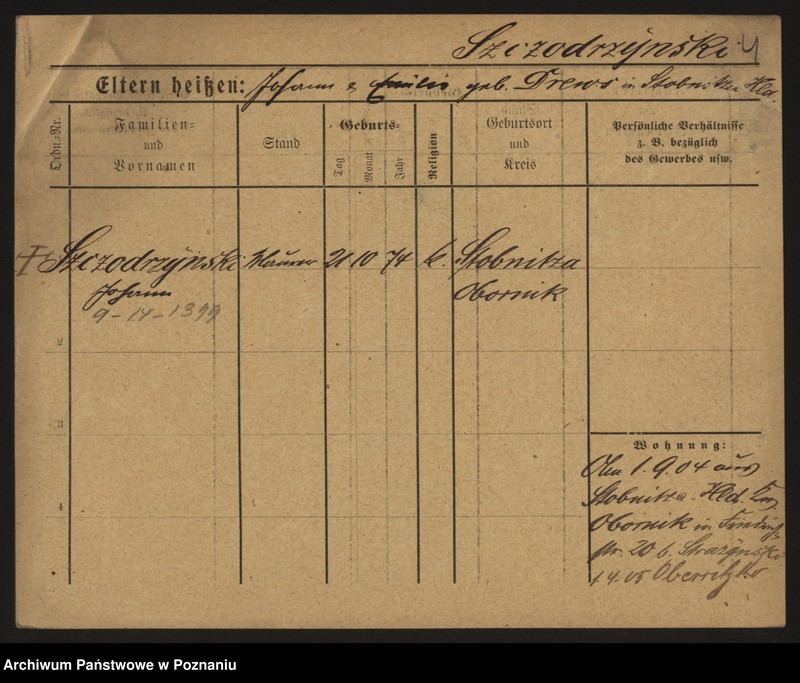 Szczodrzyński
Eltern heißen: Johann & geb. Drews in Stobnitza Hld.
Ordn.-Nr.
Familien-
und
Vornamen
Stand
Geburts-
Tag
Monat
Jahr
Religion
Geburtsort
und
Kreis
Persönliche Verhältnisse
z. B. bezüglich
des Gewerbes usw.
Szczodrzyński Maurer 21 10 74 k. Stobnitza
Johann Obornik
9-14-1399
2
3
4
Wohnung:
1.9.04 aus
Stobnitza-Hld.
Obornik in
20 b.
1.4.05
Archiwum Państwowe w Poznaniu